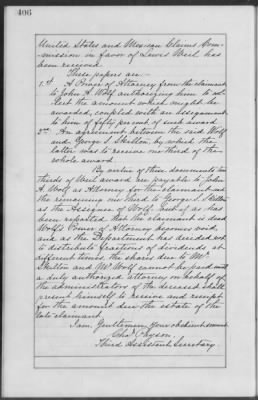 406
United States and Mexican Claims Com-
mission in favor of Lewis Weil has
been received.
These papers are—
1st A Power of Attorney from the claimant
to John A. Wolf authorizing him to col-
lect the amount which might be
awarded, coupled with an assignment
to him of fifty per cent of such award.
2nd An agreement between the said Wolf
and George S. Skilton, by which the
latter was to receive one third of the
whole award.
By virtue of these documents two
thirds of Weil award are payable to John
A. Wolf as Attorney for the claimant and
the remaining one third to George S. Skilton
as the Assignee of Wolf. But, as it has
been reported that the claimant is dead
Wolf's Power of Attorney becomes void,
and as the Department has decided not
to distribute fractions of dividends at
different times, the shares due to Mr.
Skilton and Mr. Wolf cannot be paid until
a duly authorized attorney on behalf of
the administrators of the deceased shall
present himself to receive and receipt
for the amount due the estate of the
late claimant.
I am, Gentlemen, Your obedient servant,
Chas. Payson,
Third Assistant Secretary.